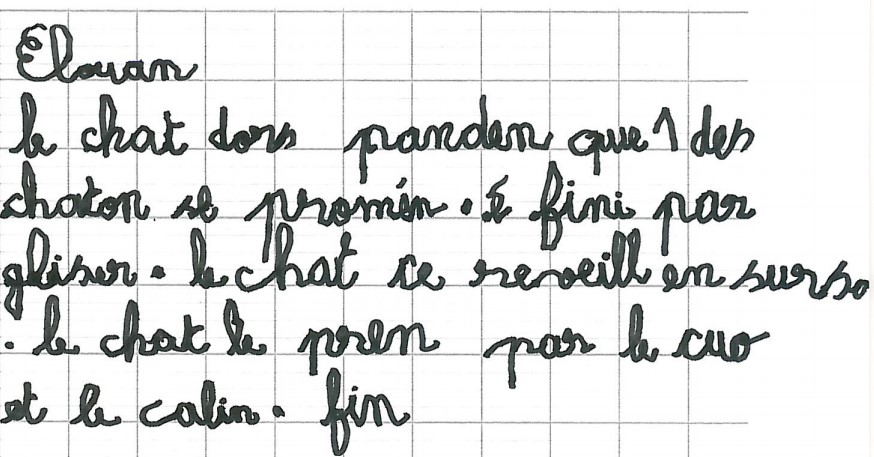 Elouan
le chat dors panden que 1 des
chaton se promin . é fini par
gliser . le chat ce reveill en surso
. le chat le pren par le cuo
et le calin . fin